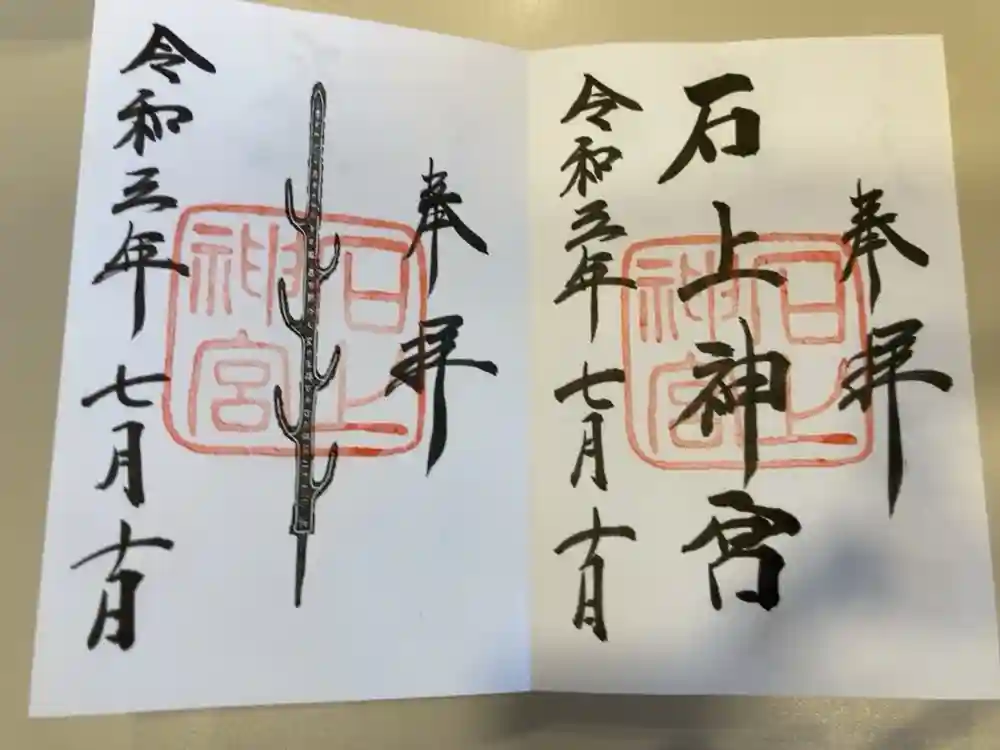 奉拝
石上神宮
令和三年七月十日
石上神宮
奉拝
令和三年七月十日
石上神宮